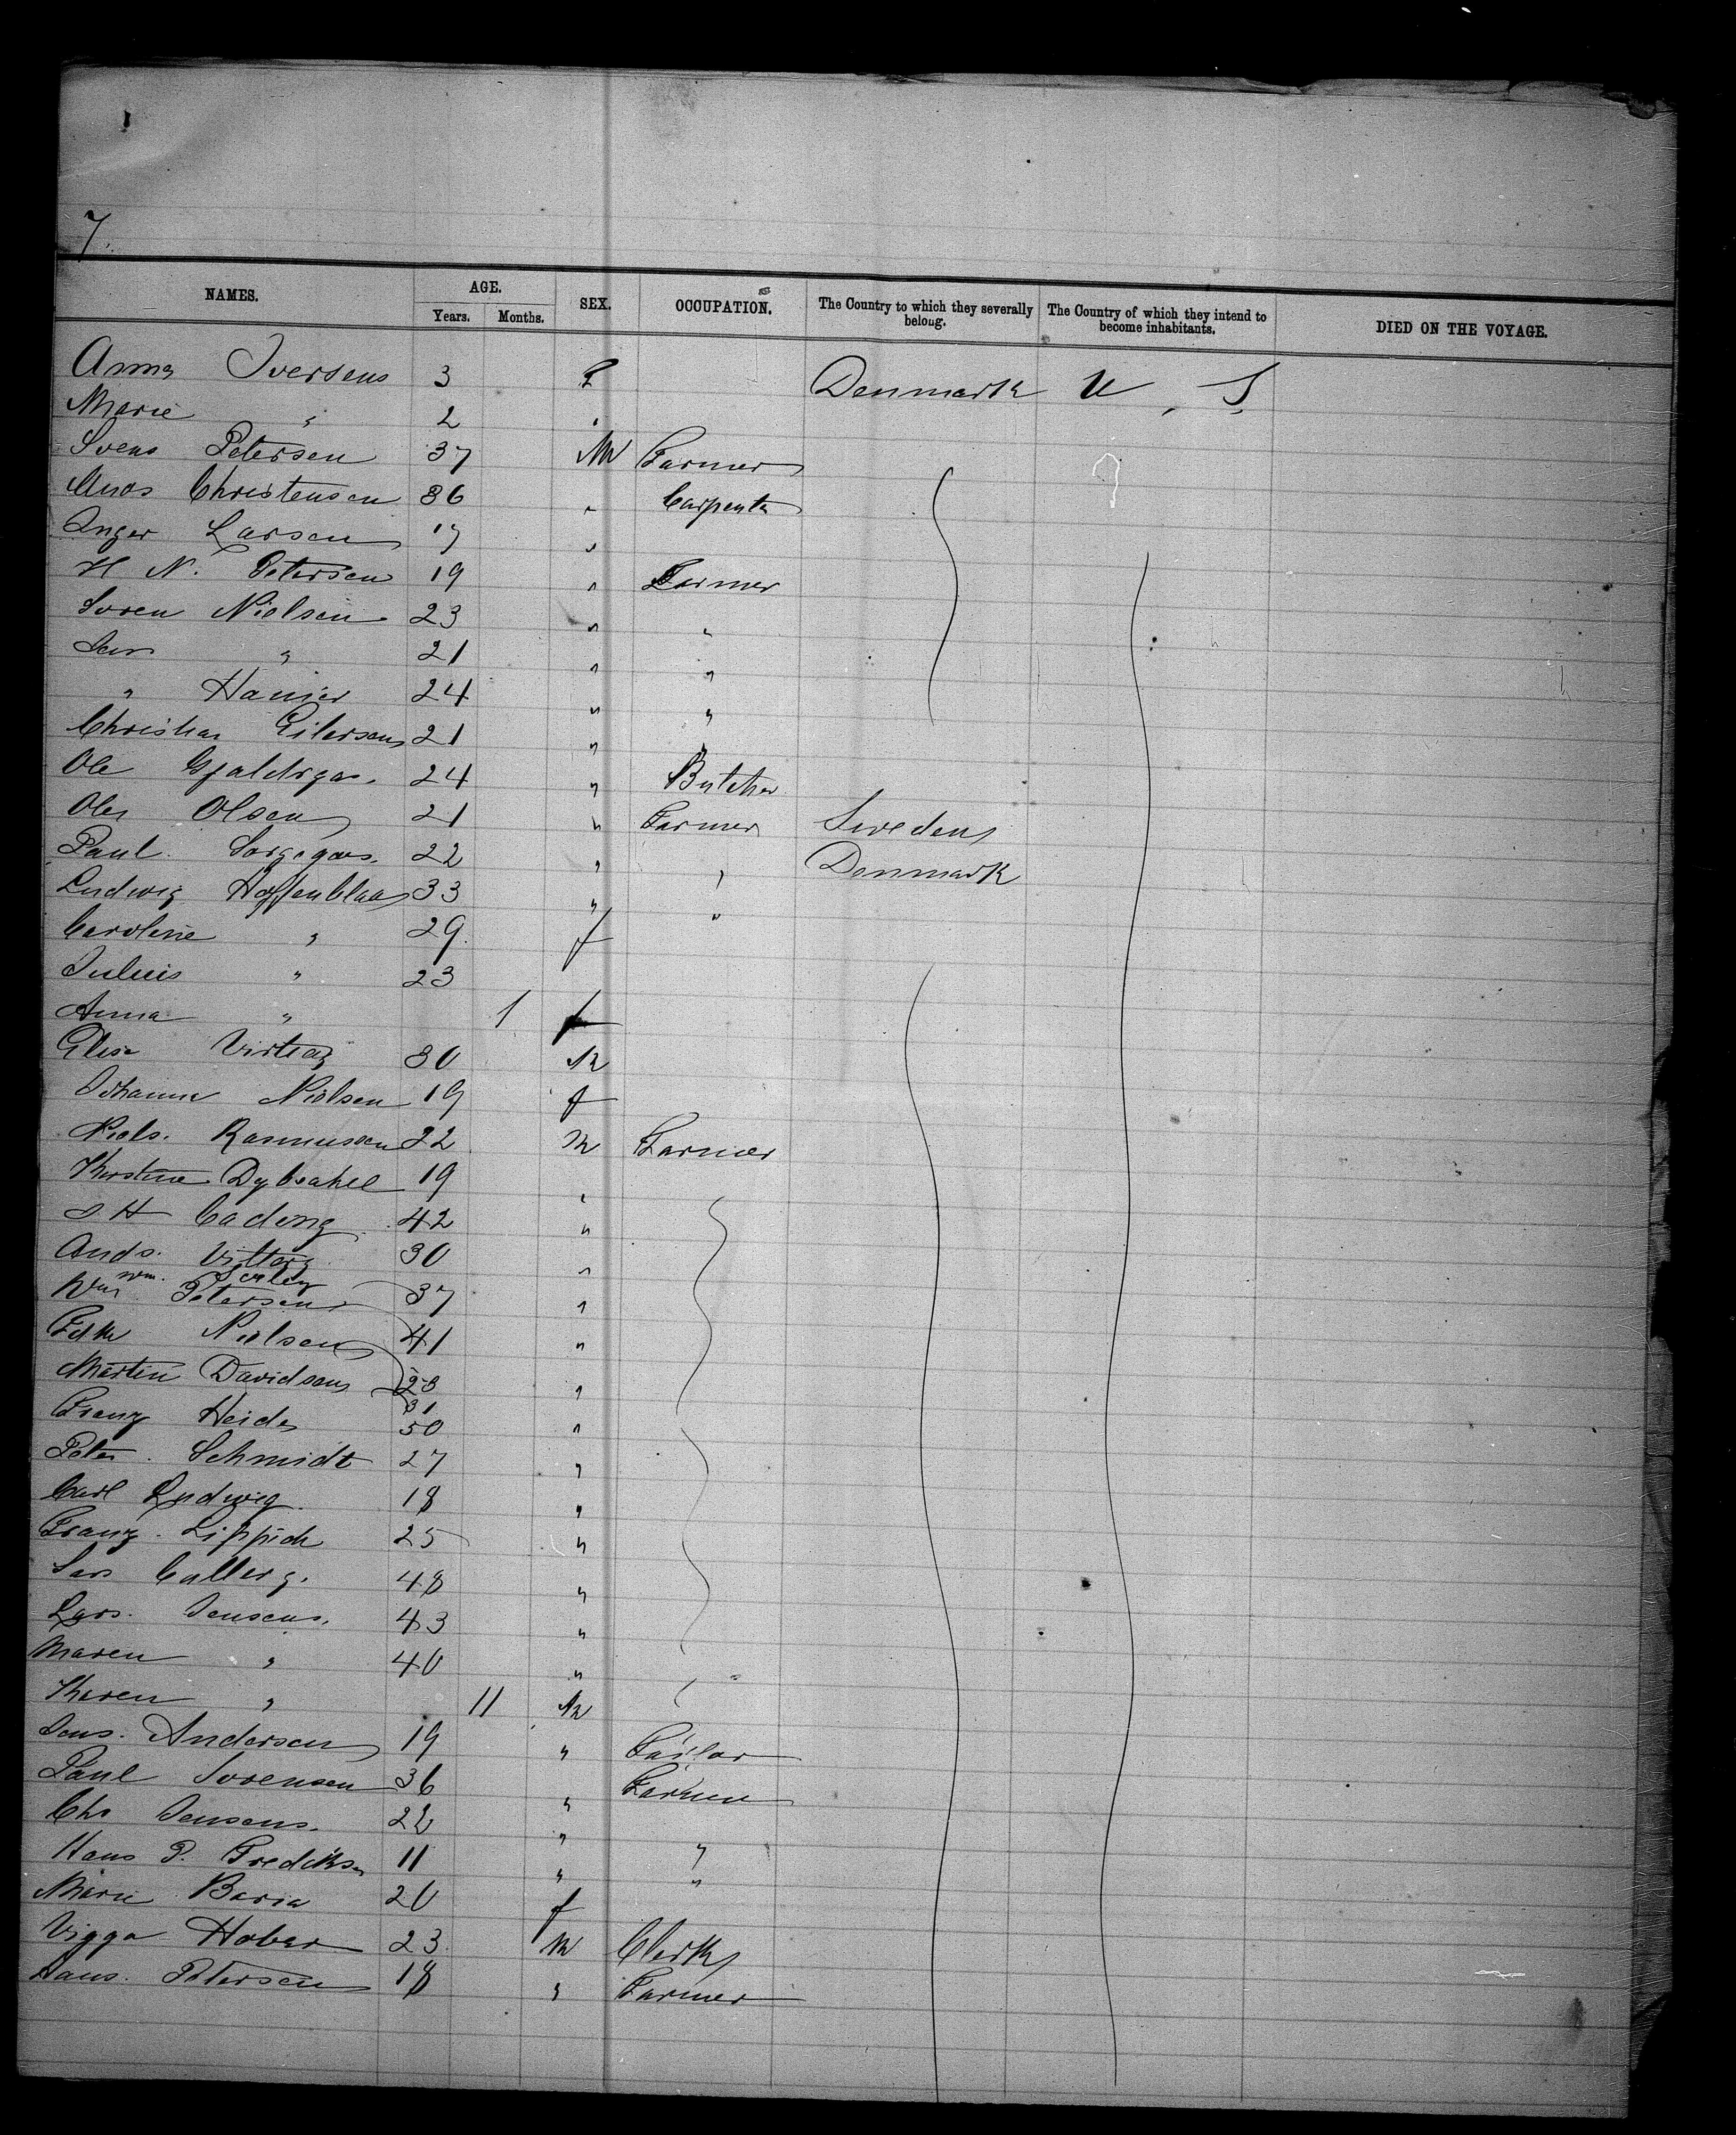 7.
NAMES. AGE. SEX. OCCUPATION. The Country to which they severally belong. The Country of which they intend to become inhabitants. DIED ON THE VOYAGE.
Years. Months.
Anna Iversens 3 F Denmark U. S.
Marie " 2 "
Svens Petersen 37 M Farmer
Christensen 36 " Carpenter
Inger Larsen 17 "
H N. Petersen 19 " Farmer
Soren Nielsen 23 " "
" 21 " "
" 24 " "
Christian Eilersens 21 " "
Ole 24 " Butcher
Oles Olsen 21 " Farmer Swedens
Paul. 22 " " Denmark
Ludwig 33 " "
Caroline " 29 f
Julius " 23
Anna " 1 f
Elise 30 M
Johanne Nielsen 19 f
Niels. Rasmussen 22 M Farmer
19 "
42 "
Ands. 30 "
Wm.
Petersens 37 "
Nielsens 41 "
Martin Davidsons 28 "
31
Franz Heides 50 "
Peter. Schmidt 27 "
Carl Ludwig. 18 "
Franz. Lippich 25 "
48 "
Lars. Jensens. 43 "
Maren " 40 "
Karen " 11 M
Jens. Andersen 19 " Tailor
Paul Sorensen 36 " Farmer
Chr Jensens. 22 " "
Hans P. 11 " "
Marie 20 f
Viggo Hober 23 M Clerk
Hans. Petersen 18 " Farmer